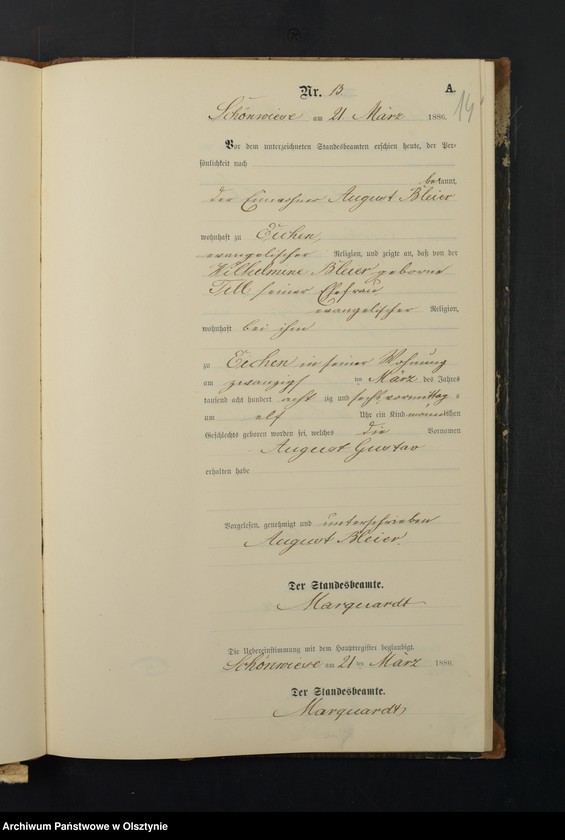 Nr. 13.
A.
14
Schönwiese am 21 März 1886.
Vor dem unterzeichneten Standesbeamten erschien heute, der Per-
sönlichkeit nach
bekannt,
der Einwohner August Bleier
wohnhaft zu Eichen,
evangelischer Religion, und zeigte an, daß von der
Wilhelmine Bleier geborne
Till seiner Ehefrau
evangelischer Religion,
wohnhaft bei ihm
zu Eichen in seiner Wohnung
am zwanzigsten März des Jahres
tausend acht hundert acht zig und sechs vormittags
um elf Uhr ein Kind männlichen
Geschlechts geboren worden sei, welches die Vornamen
August Gustav
erhalten habe
Vorgelesen, genehmigt und unterschrieben
August Bleier.
Der Standesbeamte.
Marquardt
Die Uebereinstimmung mit dem Hauptregister beglaubigt.
Schönwiese am 21 ten März 1886.
Der Standesbeamte.
Marquardt
Archiwum Państwowe w Olsztynie